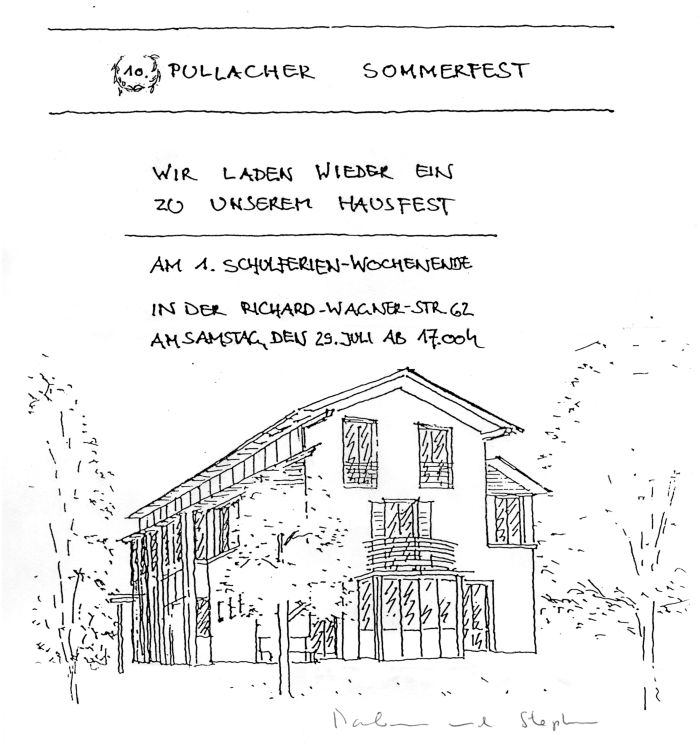 10. PULLACHER SOMMERFEST
WIR LADEN WIEDER EIN
ZU UNSEREM HAUSFEST
AM 1. SCHULFERIEN-WOCHENENDE
IN DER RICHARD-WAGNER-STR 62
AM SAMSTAG, DEN 29. JULI AB 17.00h
und Stephan